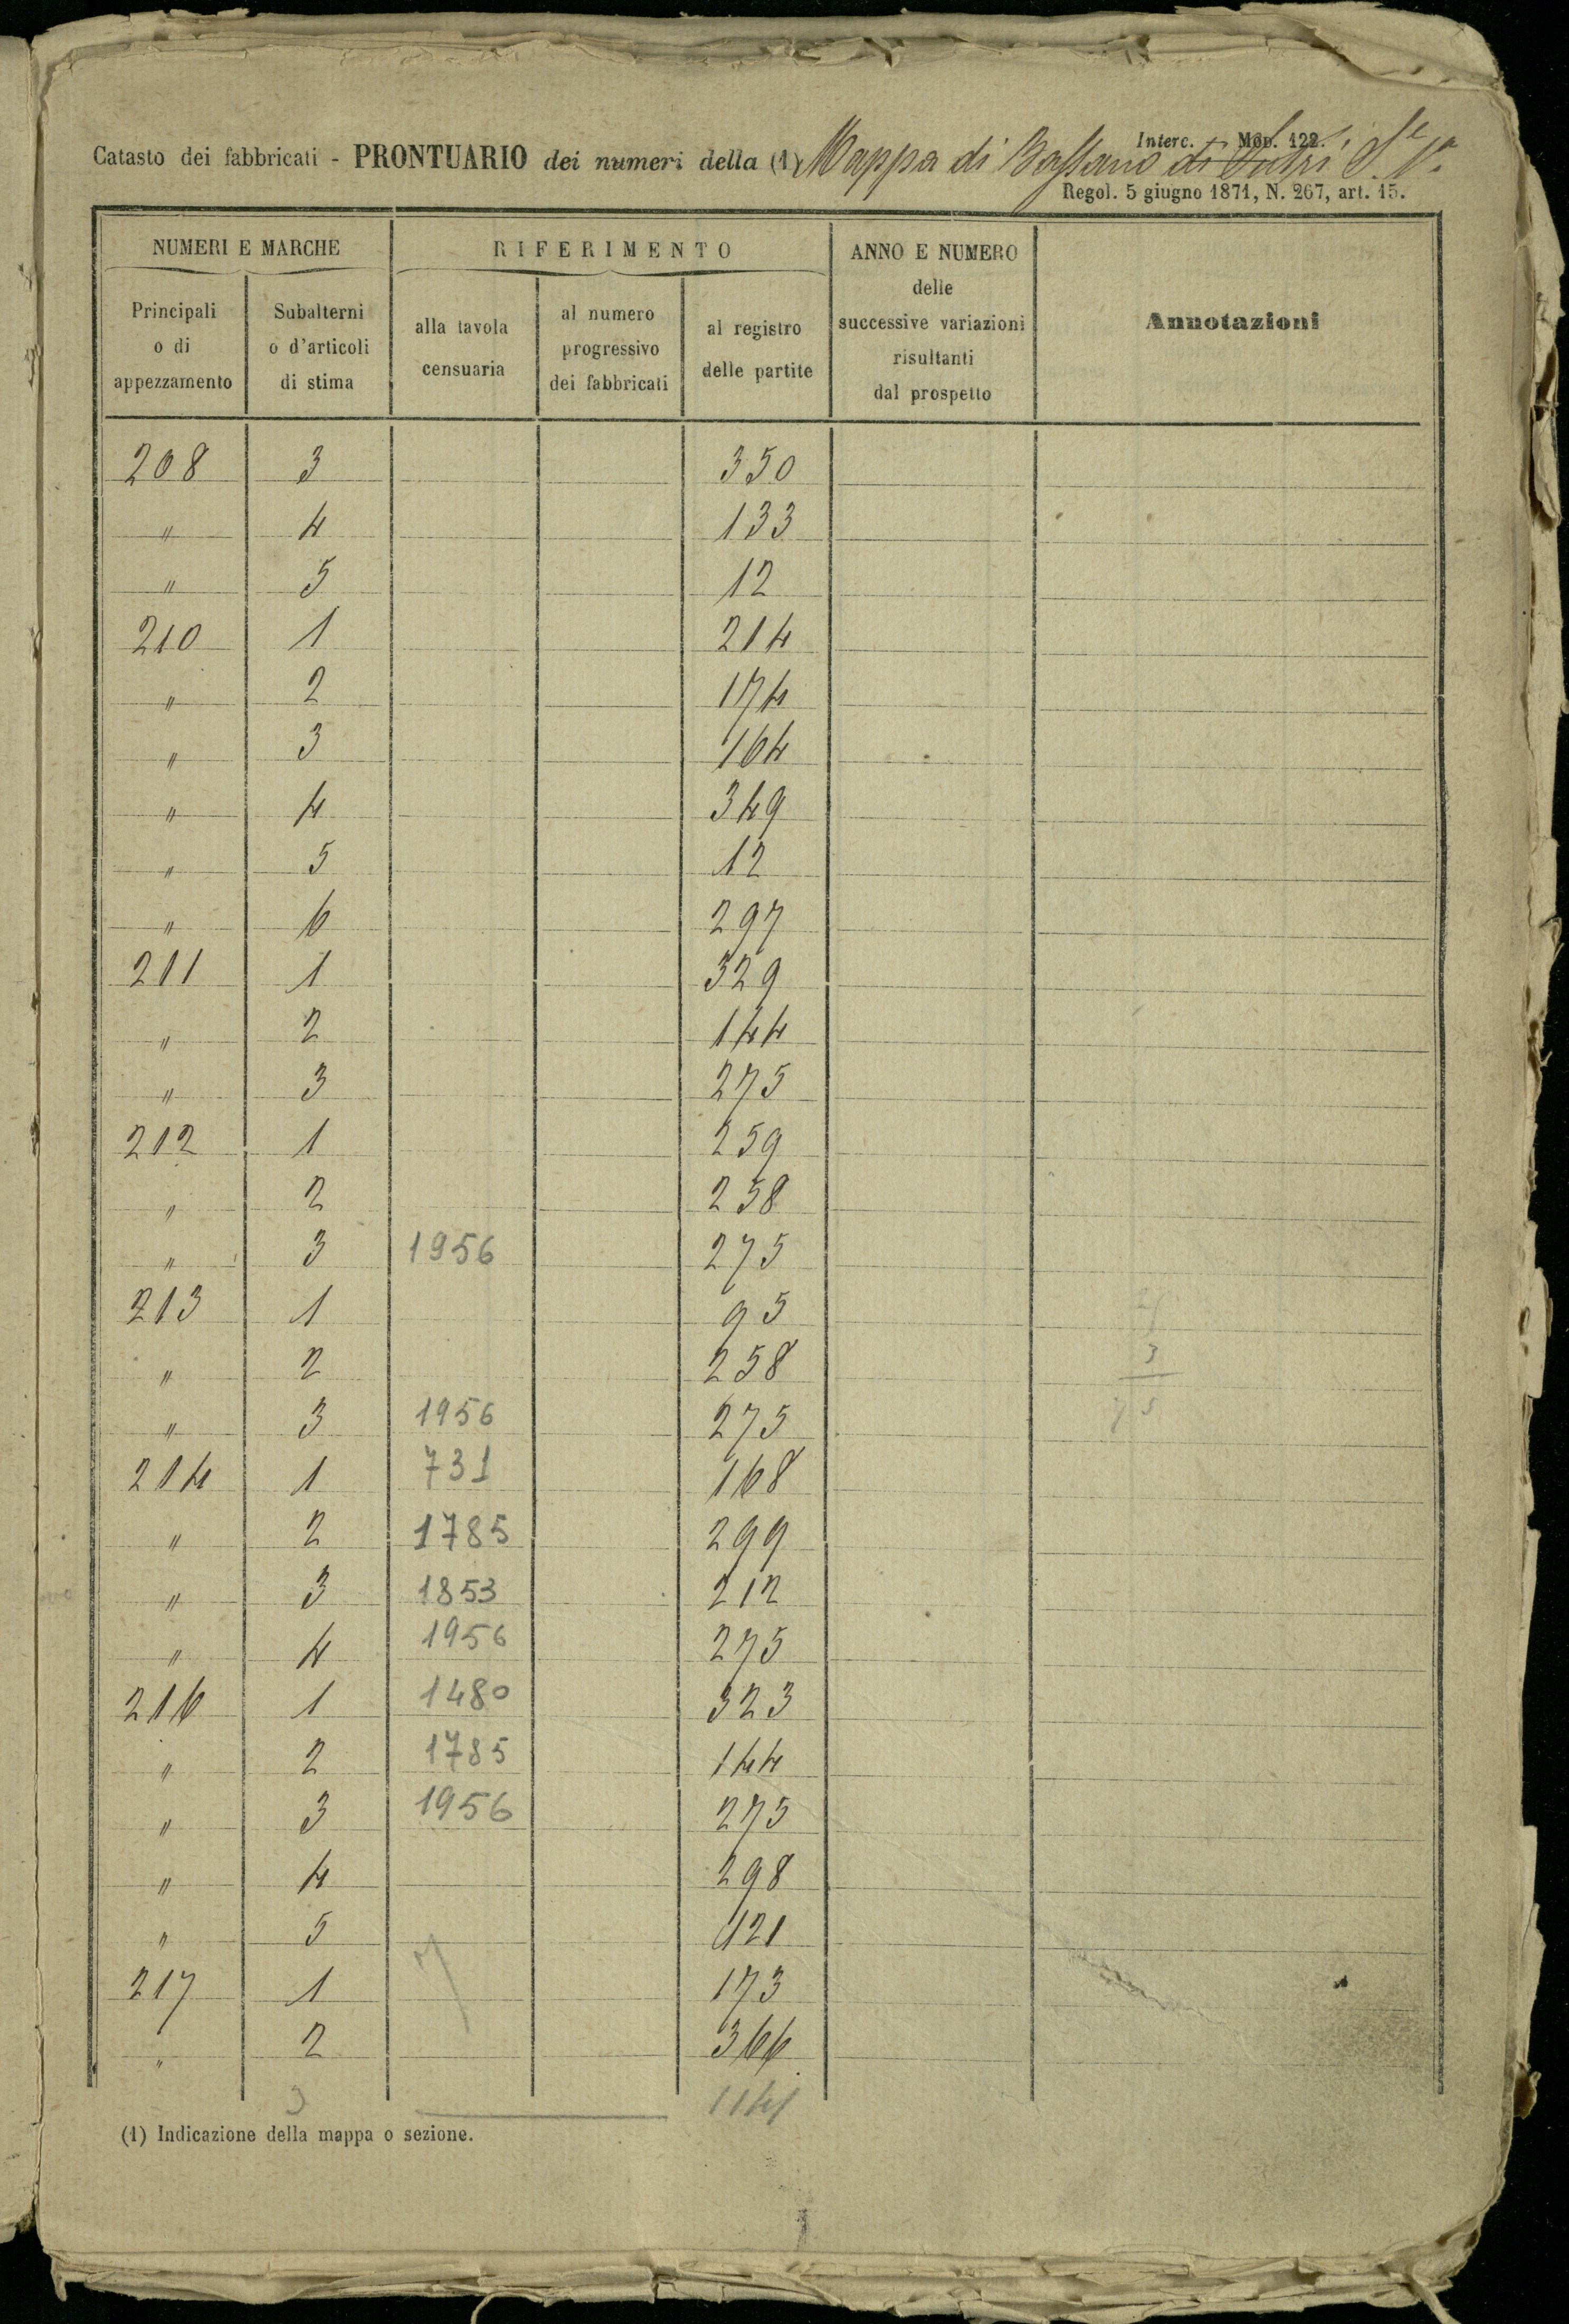 Interc. Mod. 122.
Catasto dei fabbricati - PRONTUARIO dei numeri della (1) Mappa di Bassano di Sutri S.e 1.a
Regol. 5 giugno 1871, N. 267, art. 15.
NUMERI E MARCHE RIFERIMENTO ANNO E NUMERO delle successive variazioni risultanti dal prospetto Annotazioni
Principali o di appezzamento Subalterni o d'articoli di stima alla tavola censuaria al numero progressivo dei fabbricati al registro delle partite
208 3 350
" 4 133
" 5 12
210 1 214
" 2 174
" 3 164
" 4 349
" 5 12
" 6 297
211 1 329
" 2 144
" 3 275
212 1 259
" 2 258
" 3 1956 275
213 1 95
" 2 258 3
" 3 1956 275
214 1 731 168
" 2 1785 299
" 3 1853 212
" 4 1956 275
216 1 1480 323
" 2 1785 144
" 3 1956 275
" 4 298
" 5 121
217 1 173
" 2 366
3
(1) Indicazione della mappa o sezione.